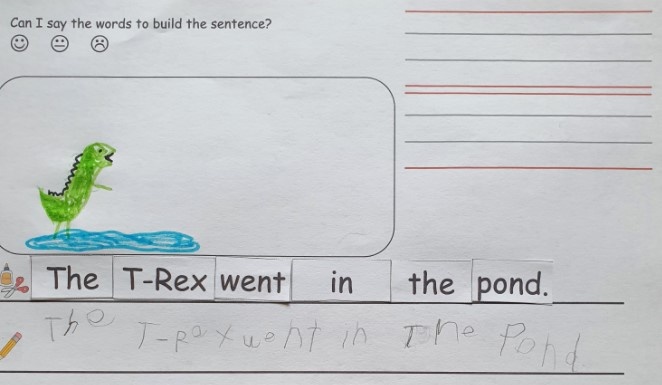 Can I say the words to build the sentence?
The T-Rex went in the pond.
The T-Rex went in The Pond.